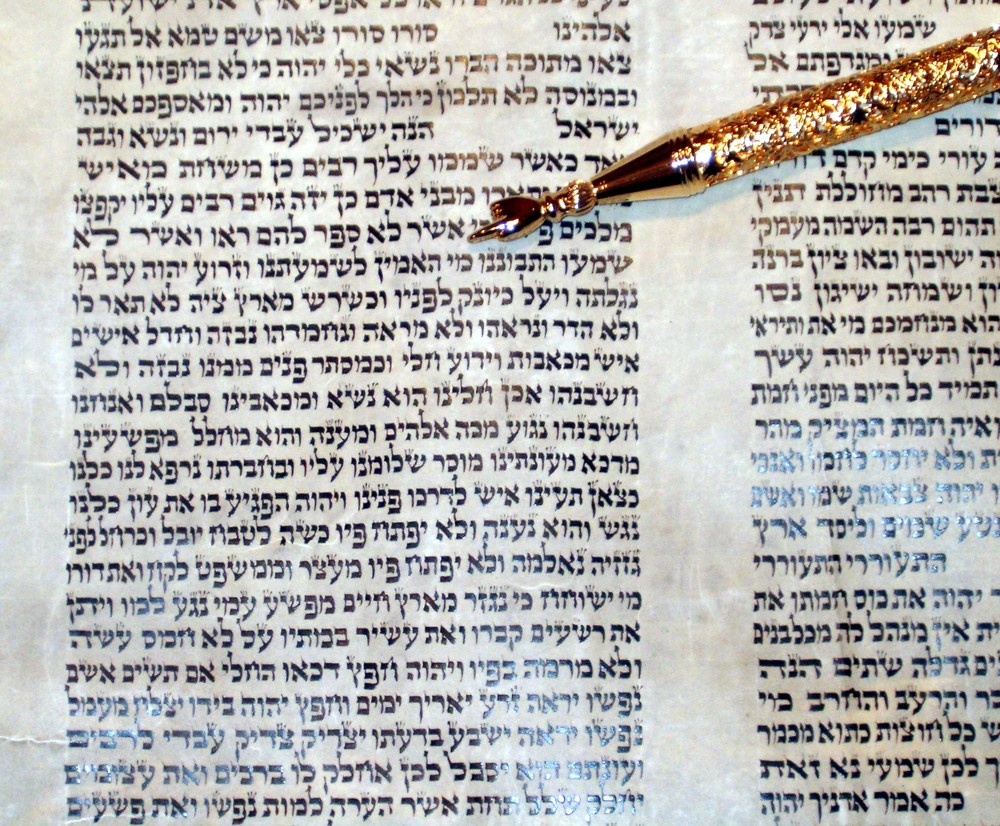 שמעו אלי ידעי צדק
ומגדפתם אל
דורים
עורי כימי קדם
רהב מחוללת תנין
תהום רבה השמה מעמקי
ישובון ובאו ציון ברנה
ושמחה ישיגון נסו
הוא מנחמכם מי את ותיראי
ותשכח יהוה עשך
תמיד כל היום מפני חמת
ואיה חמת המציק מהר
ולא יחסר לחמו ואנכי
יהוה צבאות שמו ואשם
שמים וליסד ארץ
התעוררי התעוררי
יהוה את כוס חמתו את
אין מנהל לה מכל בנים
גדלה שתים הנה
והרעב והחרב מי
כל חוצות כתוא מכמר
לכן שמעי נא זאת
כה אמר אדניך יהוה
אלהינו סורו סורו צאו משם טמא אל תגעו
צאו מתוכה הברו נשאי כלי יהוה כי לא בחפזון תצאו
ובמנוסה לא תלכון כי הלך לפניכם יהוה ומאספכם אלהי
ישראל הנה ישכיל עבדי ירום ונשא וגבה
מאד כאשר שממו עליך רבים כן משחת מאיש
מבני אדם כן יזה גוים רבים עליו יקפצו
מלכים אשר לא ספר להם ראו ואשר לא
שמעו התבוננו מי האמין לשמעתנו וזרוע יהוה על מי
נגלתה ויעל כיונק לפניו וכשרש מארץ ציה לא תאר לו
ולא הדר ונראהו ולא מראה ונחמדהו נבזה וחדל אישים
איש מכאבות וידוע חלי וכמסתר פנים ממנו נבזה ולא
חשבנהו אכן חלינו הוא נשא ומכאבינו סבלם ואנחנו
חשבנהו נגוע מכה אלהים ומענה והוא מחלל מפשעינו
מדכא מעונתינו מוסר שלומנו עליו ובחברתו נרפא לנו כלנו
כצאן תעינו איש לדרכו פנינו ויהוה הפגיע בו את עון כלנו
נגש והוא נענה ולא יפתח פיו כשה לטבח יובל וכרחל לפני
גזזיה נאלמה ולא יפתח פיו מעצר וממשפט לקח ואת דורו
מי ישוחח כי נגזר מארץ חיים מפשע עמי נגע למו ויתן
את רשעים קברו ואת עשיר במתיו על לא חמס עשה
ולא מרמה בפיו ויהוה חפץ דכאו החלי אם תשים אשם
נפשו יראה זרע יאריך ימים וחפץ יהוה בידו יצלח מעמל
נפשו יראה ישבע בדעתו יצדיק צדיק עבדי לרבים
ועונתם הוא יסבל לכן אחלק לו ברבים ואת עצומים
יחלק שלל תחת אשר הערה למות נפשו ואת פשעים